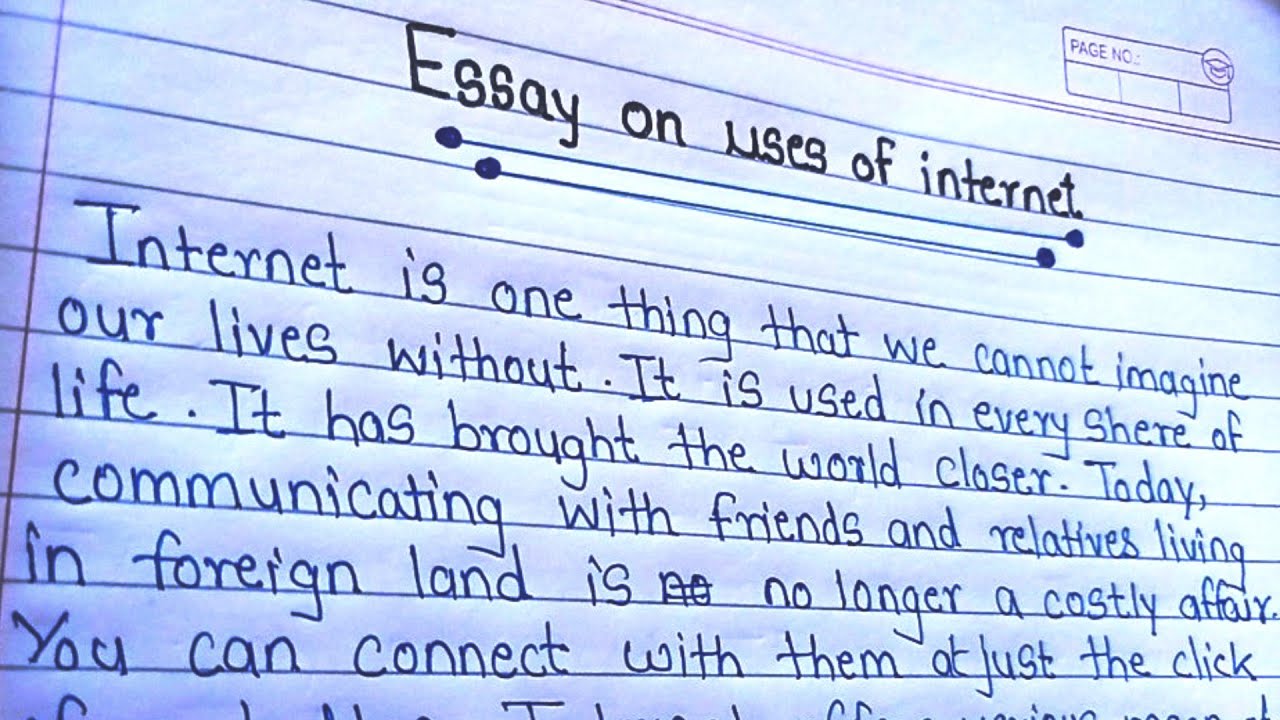 PAGE NO.:
Essay on uses of internet
Internet is one thing that we cannot imagine
our lives without. It is used in every shere of
life. It has brought the world closer. Today,
communicating with friends and relatives living
in foreign land is no longer a costly affair.
You can connect with them at just the click
of